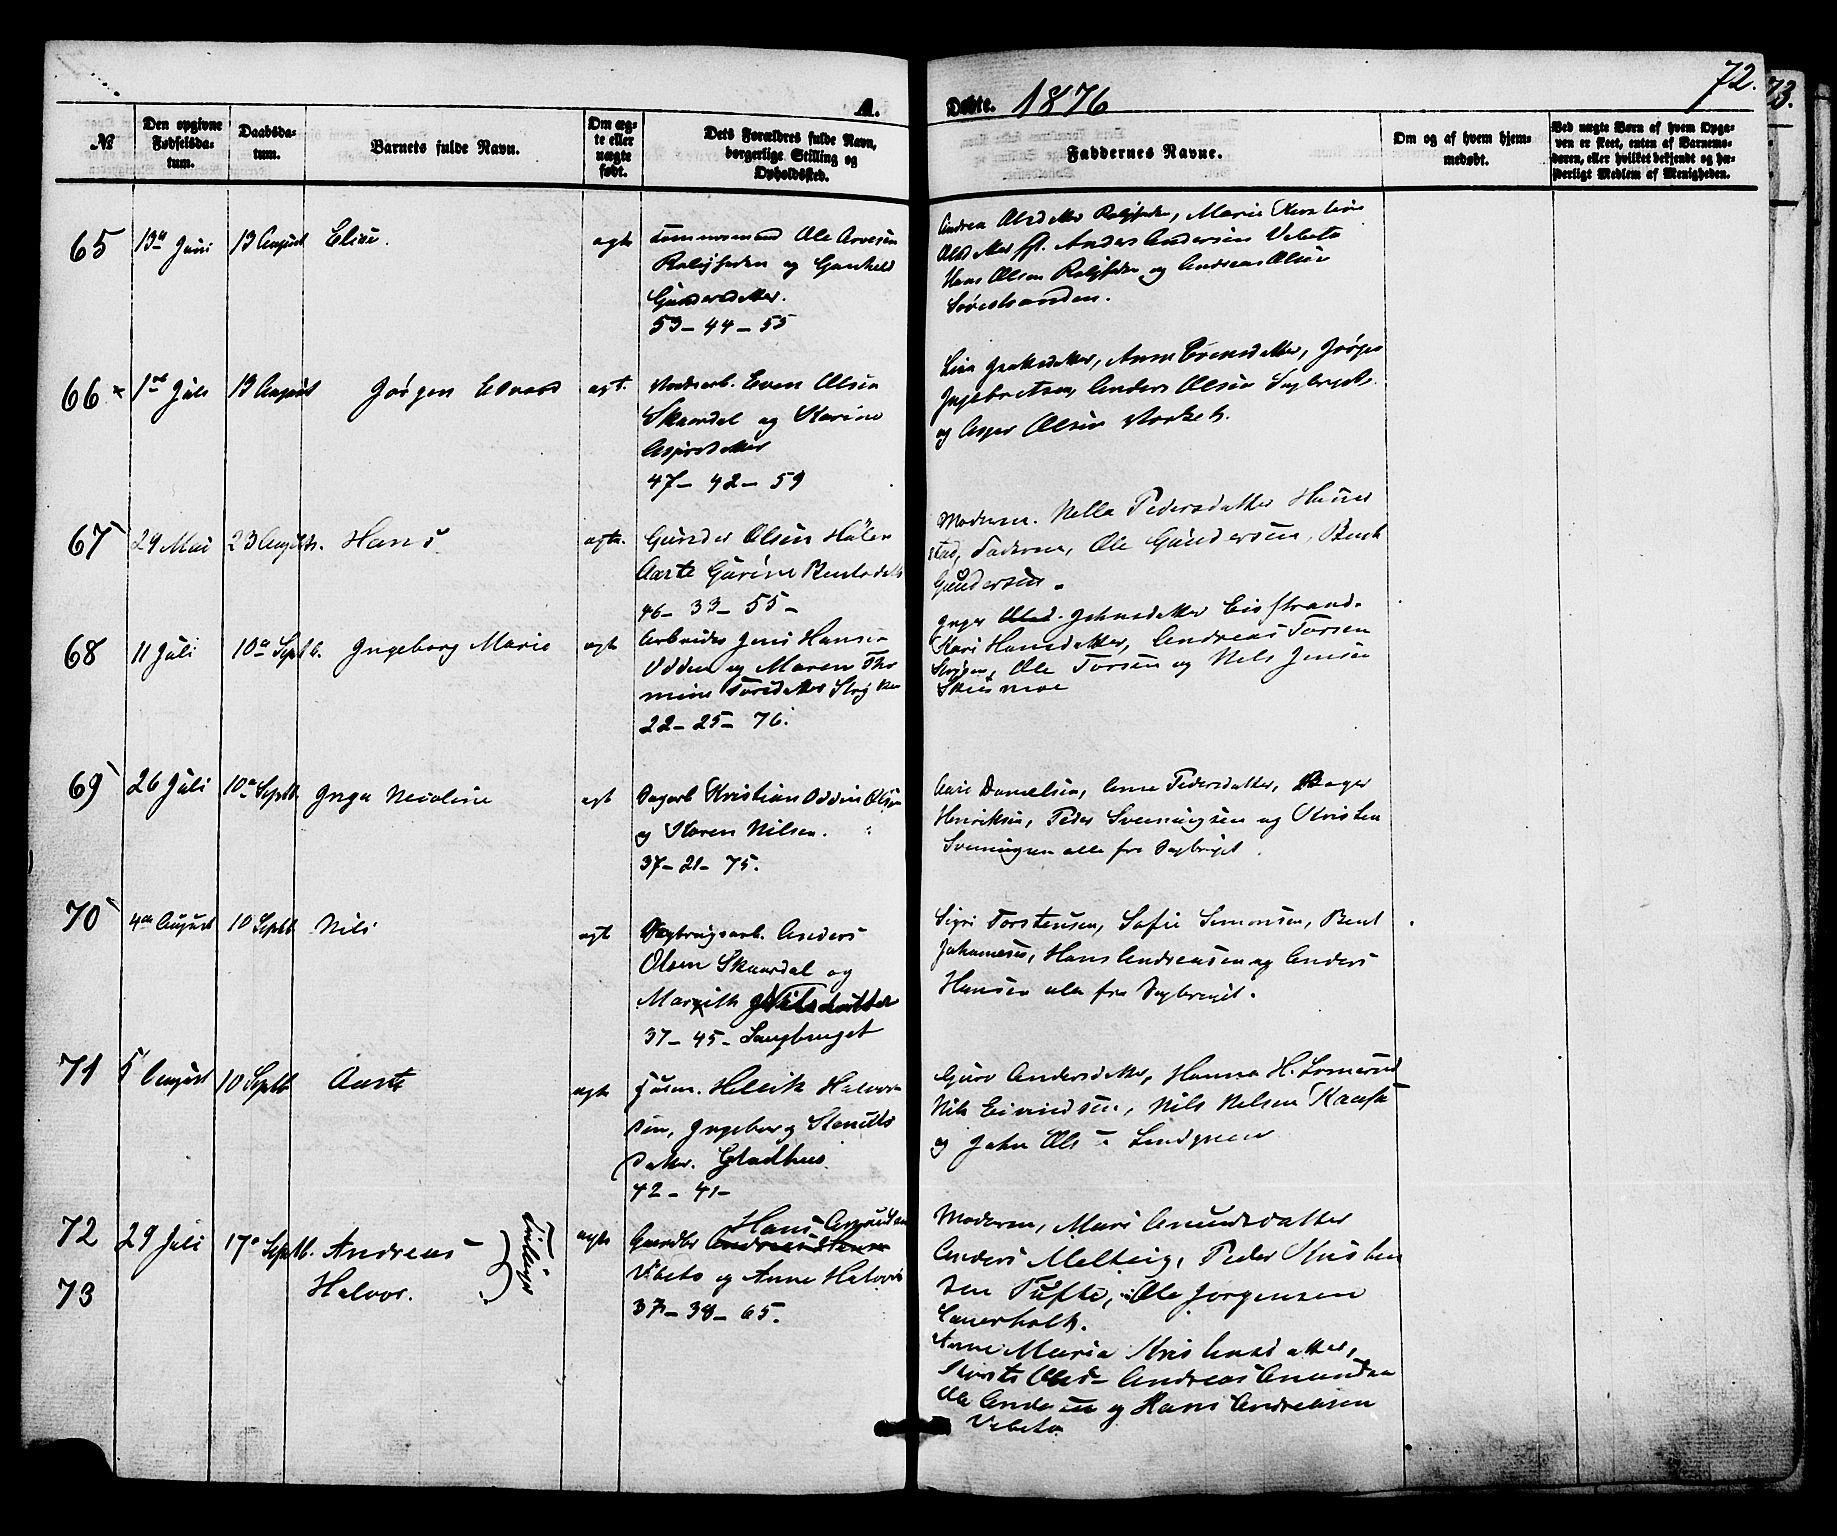 A. Døbte. 1876
72.
73.
№
Den opgivne Fødselsdatum.
Daabsdatum.
Barnets fulde Navn.
Om ægte eller uægte født.
Dets Forældres fulde Navn, borgerlige Stilling og Opholdssted.
Faddernes Navne.
Om og af hvem hjemmedøbt.
Ved uægte Børn af hvem Opgaven er skeet, enten af Barnemoderen, eller hvilket bekjendt og hæderligt Medlem af Menigheden.
65
13de Juni
13 August
Elise.
ægte
Tømmermand Ole Arvesen
og Gunhild
Gundersdatter.
53 - 44 - 55
Andrea Olsdatter, Marie Kirstine
Olsdatter, Anders Andersen Vebeto
Hans Olsen og Andreas Olsen
66
1ste Juli
13 August
Jørgen Edvard
ægt.
Even Olsen
Skaardal og Karine
Aspersdatter
47 - 42 - 59
Anne Evensdatter, Jørgen
Ingebretsen, Anders Olsen Sagbruget
og Asper Olsen
67
29 Mai
23 August.
Hans
ægte.
Gunder Olsen
Aaste Gurine Bentsdatt
46 - 33 - 55 -
Moderen. Nella Pedersdatter
Faderen, Ole Gundersen, Bent
Gundersen.
68
11 Juli
10de Septb.
Ingeborg Marie
ægte
Arbeider Jens Hansen
Odden og Maren Tho
mine Toresdatter
22 - 25 - 76.
Inger Johnsdatter
Kari Hansdatter, Andreas Torsen
Ole Torsen og Nels Jensen
69
26 Juli
10de Septb
Inga Nicoline
ægt
Sagarb Kristian Oddin Olsen
og Karen Nilsen.
37 - 21 - 75.
Danielsen, Anne Pedersdatter,
Henriksen, Peder Svenningsen og Kristen
Svenningsen alle fra Sagbruget.
70
4de August
10 Septb
Nils
ægt
Sagbrugsarb. Anders
Olsen Skaardal og
Margith Nilsdatter
37 - 45 - Saugbruget
Sigri Torstensen, Sofie Simonsen, Bent
Johannesen, Hans Andreasen og Anders
Hansen alle fra Sagbruget.
71
5 August
10 Septb
Aaste
ægte
Husm. Halvor
sen, Ingeborg Knuds
datter. Gladhus
42 - 41 -
Guro Andersdatter, Hanna H.
Nils Eivindsen, Nils Nelsen Kaasa
og John Ols Lindgreen
72
73
29 Juli
17de Septb.
Andreas
Halvor.
Tvillinger
ægte
Hans Amundsen
Gaardbr
Vibeto og Anne Halvors
37 - 38 - 65.
Moderen, Mari Amundsdatter
Anders Melteig, Peder Kristen
sen Tufte, Ole Jørgensen
Anne Maria Kristensdatter,
Andreas Amundsen
Ole Andersen og Hans Andreasen
Vebeto